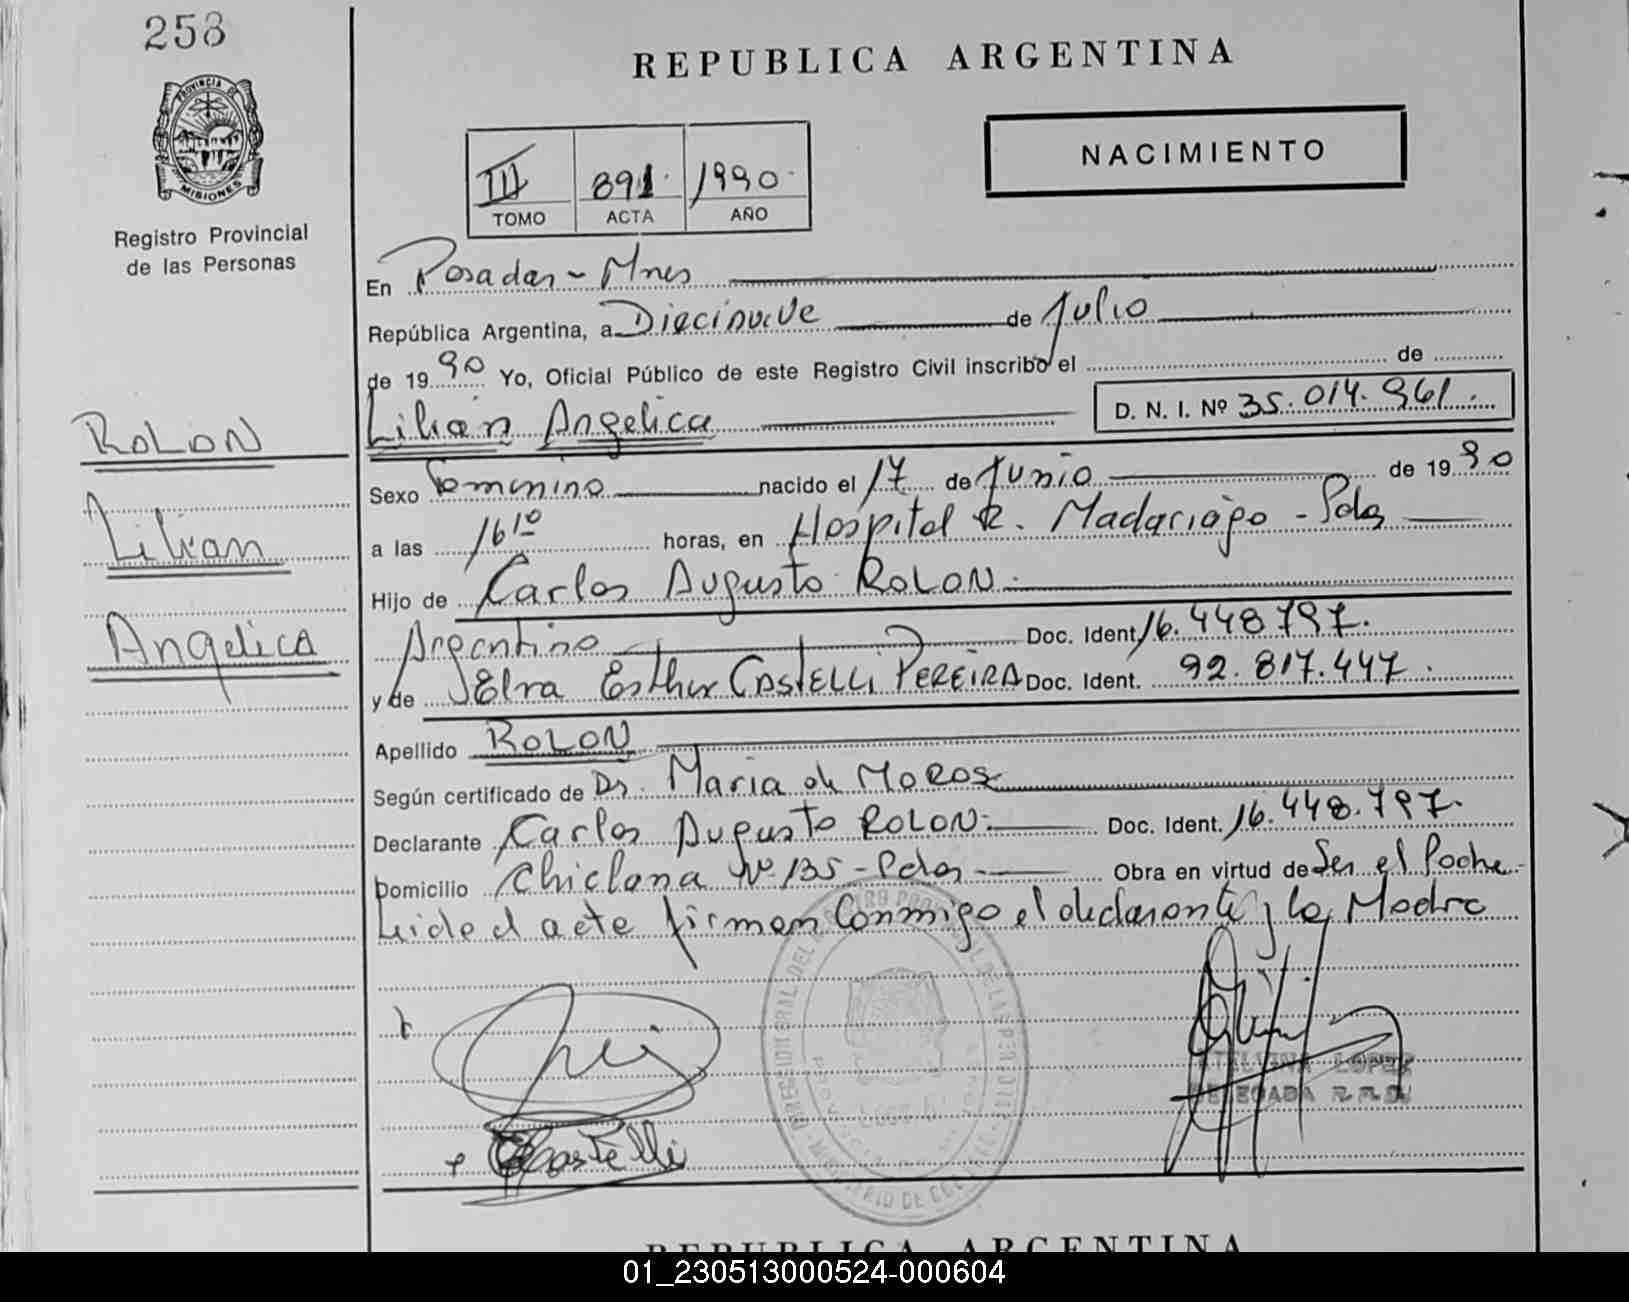 258
PROVINCIA DE
MISIONES
Registro Provincial
de las Personas
REPUBLICA ARGENTINA
NACIMIENTO
III 891 1990
TOMO ACTA AÑO
En Posadas - Mnes
República Argentina, a Diecinueve de Julio
de 1990 Yo, Oficial Público de este Registro Civil inscribo el de
Lilian Angelica D. N. I. Nº 35.014.961.
Sexo Femenino nacido el 17 de Junio de 1990
a las 16 10 horas, en Hospital R. Madariaga - Pdas
Hijo de Carlos Augusto ROLON
Argentino Doc. Ident. 16.448.797.
y de Elva Esther CASTELLI PEREIRA Doc. Ident. 92.817.447.
Apellido ROLON
Según certificado de Dr. Maria de MOROS
Declarante Carlos Augusto ROLON Doc. Ident. 16.448.797.
Domicilio Chiclana Nº 135 - Pdas Obra en virtud de Ser el Padre
Leida el acta firman Conmigo el declarante y la Madre
ROLON
Lilian
Angelica
Castelli
LOPEZ
DELEGADA
REPUBLICA ARGENTINA
01_230513000524-000604